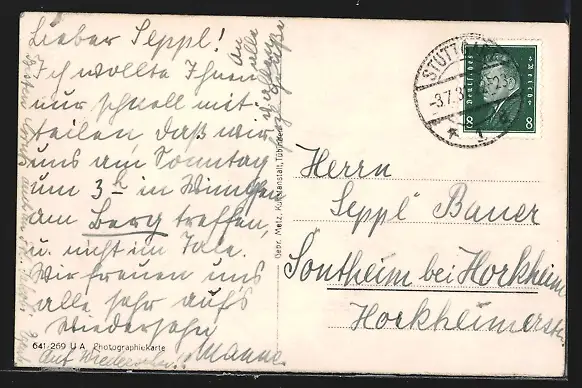 Lieber Seppl!
Ich wollte Ihnen
nur schnell mit-
teilen daß wir
uns am Sonntag
um 3 h in
am Berg treffen,
u. nicht im Tale.
Wir freuen uns
alle sehr auf's
Wiedersehn
Auf Wiedersehn!
an alle
641-269 U A Photographiekarte
Gebr. Metz, Kunstanstalt, Tübingen
STUTTGART
-3.7.3
1
Deutsches Reich
8 8
Herrn
Seppl Bauer
Sontheim bei Horkheim
Horkheimerstr.